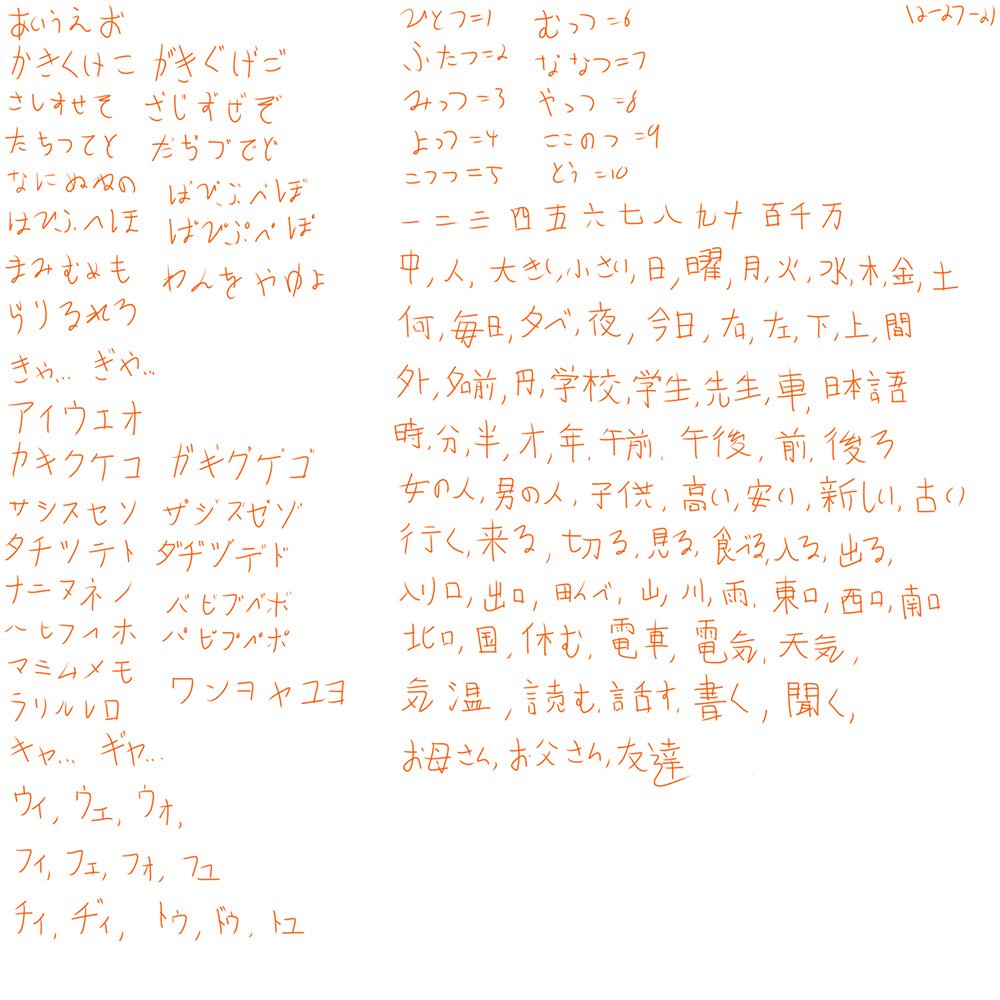 あいうえお
かきくけこ がぎぐげご
さしすせそ ざじずぜぞ
たちつてと だぢづでど
なにぬねの
はひふへほ ばびぶべぼ
ぱぴぷぺぽ
まみむめも
らりるれろ わんをやゆよ
きゃ... ぎゃ...
アイウエオ
カキクケコ ガギグゲゴ
サシスセソ ザジズゼゾ
タチツテト ダヂヅデド
ナニヌネノ
ハヒフヘホ バビブベボ
パピプペポ
マミムメモ
ラリルレロ ワンヲヤユヨ
キャ... ギャ...
ウィ, ウェ, ウォ,
フィ, フェ, フォ, フュ
チィ, ヂィ, トゥ, ドゥ, トュ
ひとつ=1 むっつ=6
ふたつ=2 ななつ=7
みっつ=3 やっつ=8
よっつ=4 ここのつ=9
こつつ=5 とう=10
一二三四五六七八九十百千万
中, 人, 大きい, 小さい, 日, 曜, 月, 火, 水, 木, 金, 土
何, 毎日, 夕べ, 夜, 今日, 右, 左, 下, 上, 間
外, 名前, 円, 学校, 学生, 先生, 車, 日本語
時, 分, 半, 才, 年, 午前, 午後, 前, 後ろ
女の人, 男の人, 子供, 高い, 安い, 新しい, 古い
行く, 来る, 切る, 見る, 食べる, 入る, 出る,
入り口, 出口, 田んべ, 山, 川, 雨, 東口, 西口, 南口
北口, 国, 休む, 電車, 電気, 天気,
気温, 読む, 話す, 書く, 聞く,
お母さん, お父さん, 友達
12-27-21